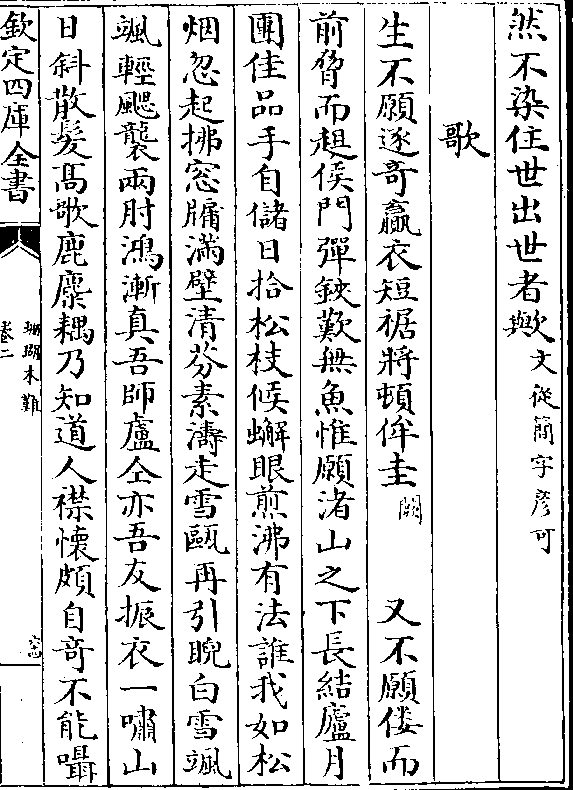 然不染住世出世者歟文從簡字彦可
歌
生不願逐奇贏衣短裾將頓侔圭闕 又不願僂而
前脅而趄侯門彈鋏歎無魚惟願渚山之下長結廬月
團佳品手自儲日拾松枝候蠏眼煎沸有法誰我如松
烟忽起拂窓牖滿壁清芬素濤走雪甌再引睨白雪颯
颯輕颸襲兩肘鴻漸真吾師盧仝亦吾友振衣一嘯山
日斜散髮髙歌鹿麋耦乃知道人襟懷頗自竒不能囁
欽定四庫全書
珊瑚木難
卷二